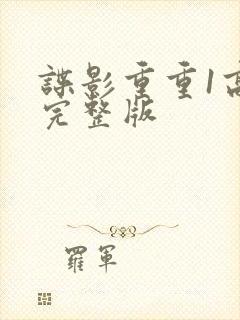 諜影重重1高
完整版
羅軍